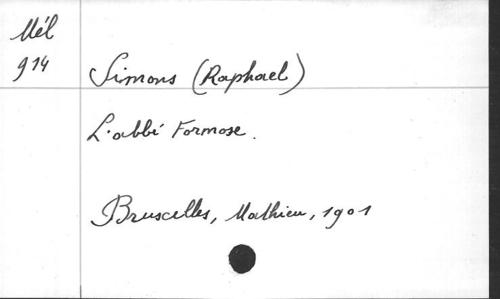 Mél
914
Simons (Raphael)
L'abbé Formose.
Bruxelles, Mathieu, 1901